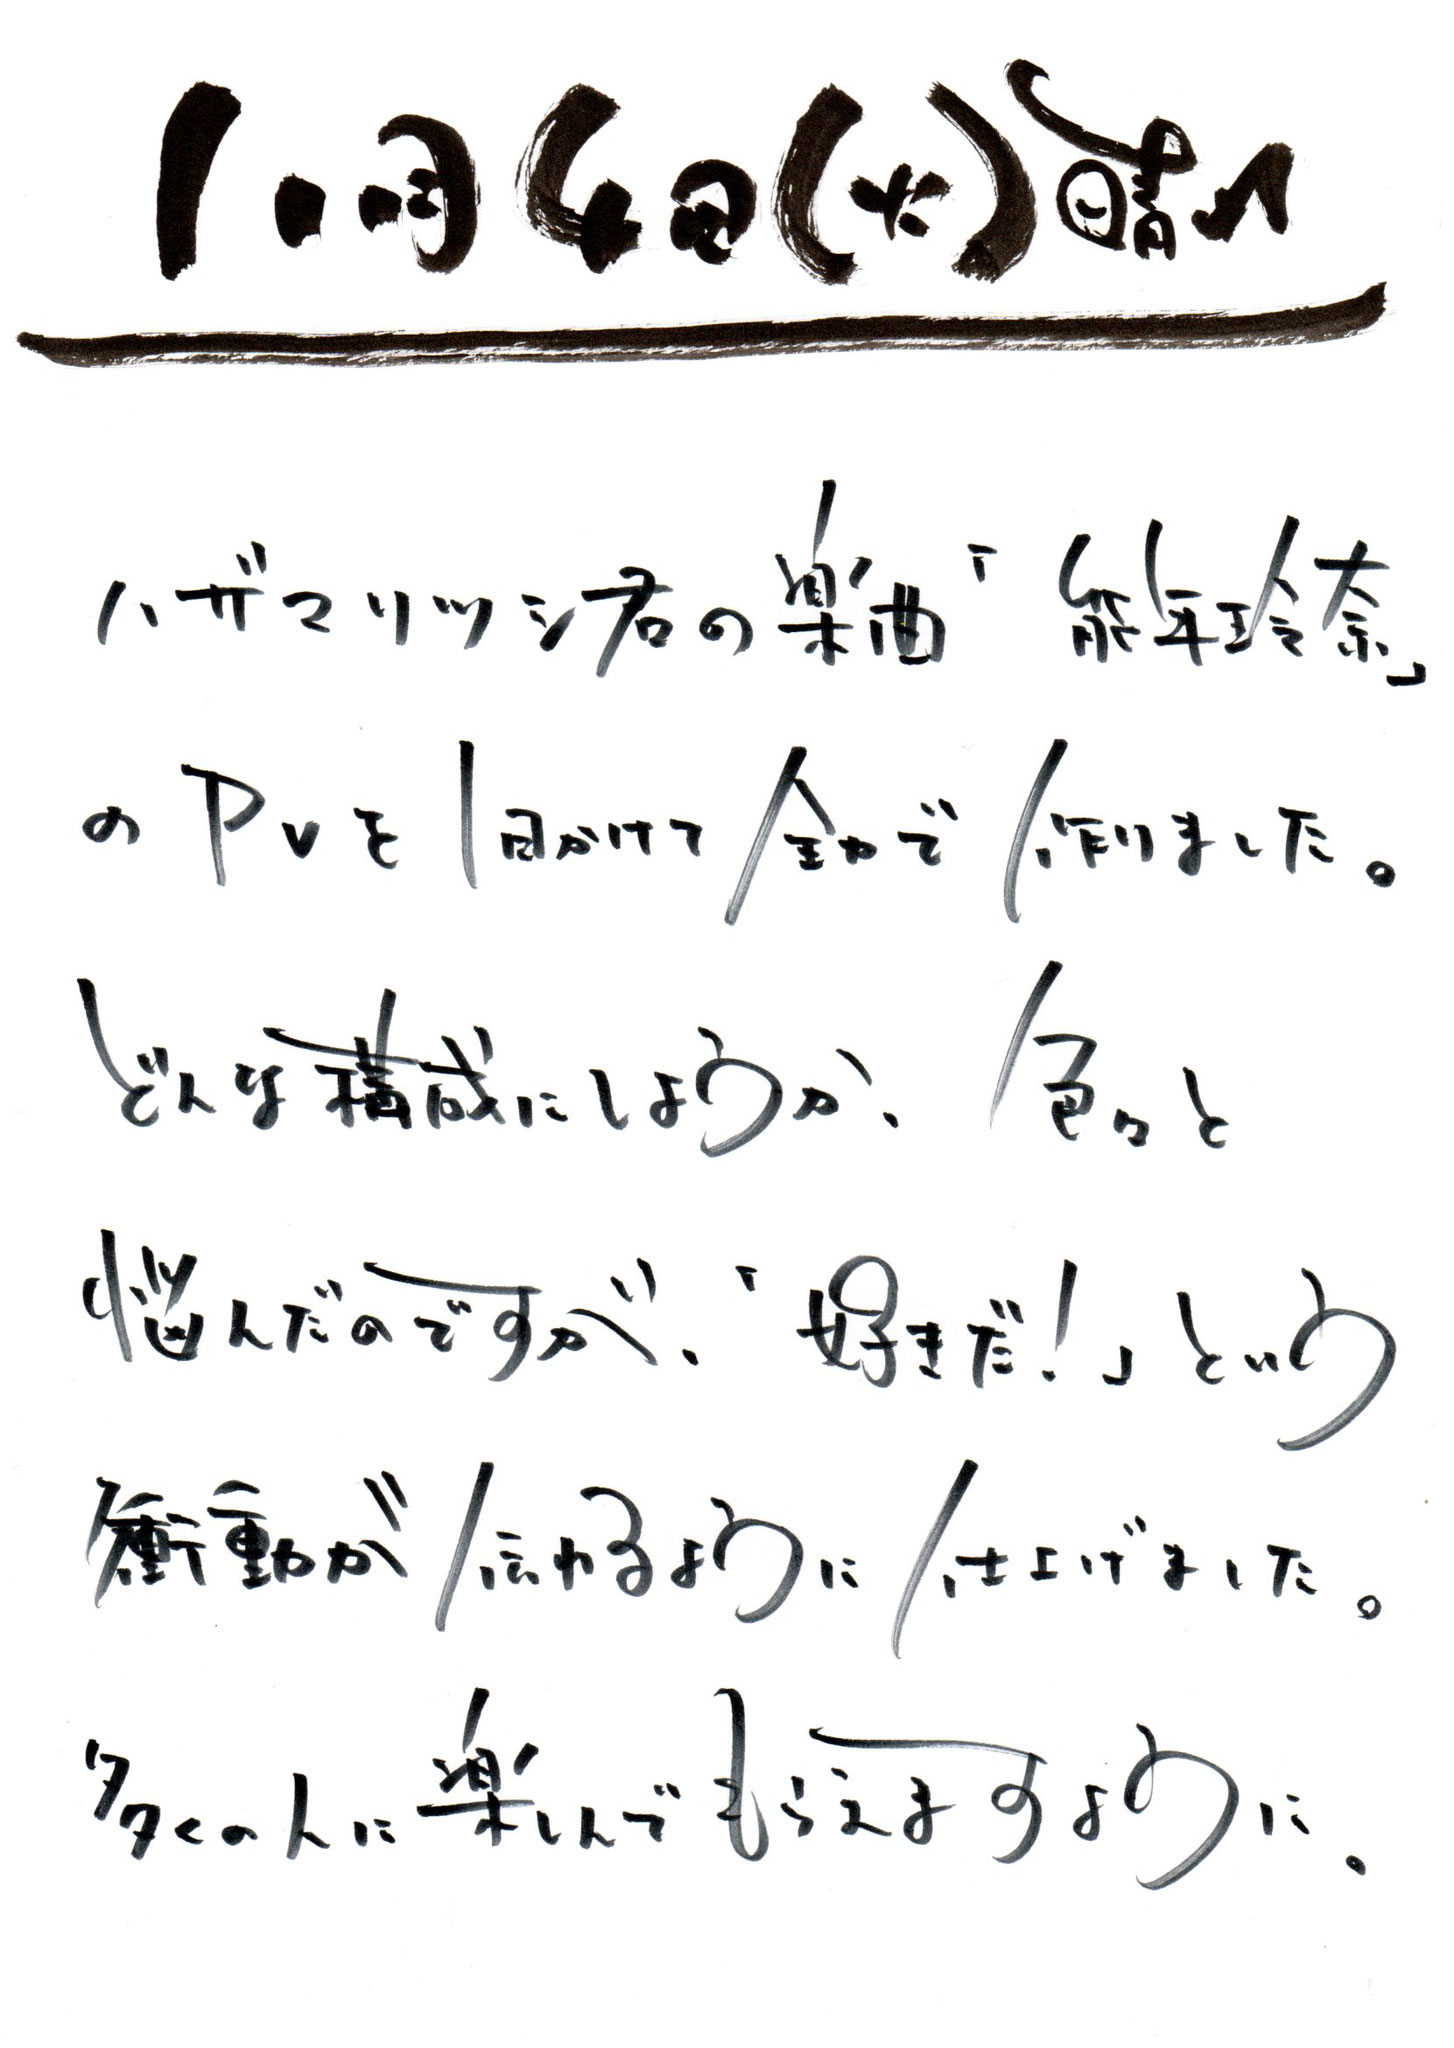 10月4日(火)晴れ
ハザマリツシ君の楽曲「能年玲奈」
のPVを1日かけて全力で作りました。
どんな構成にしようか、色々と
悩んだのですが、「好きだ!」という
衝動が伝わるように仕上げました。
多くの人に楽しんでもらえますように。